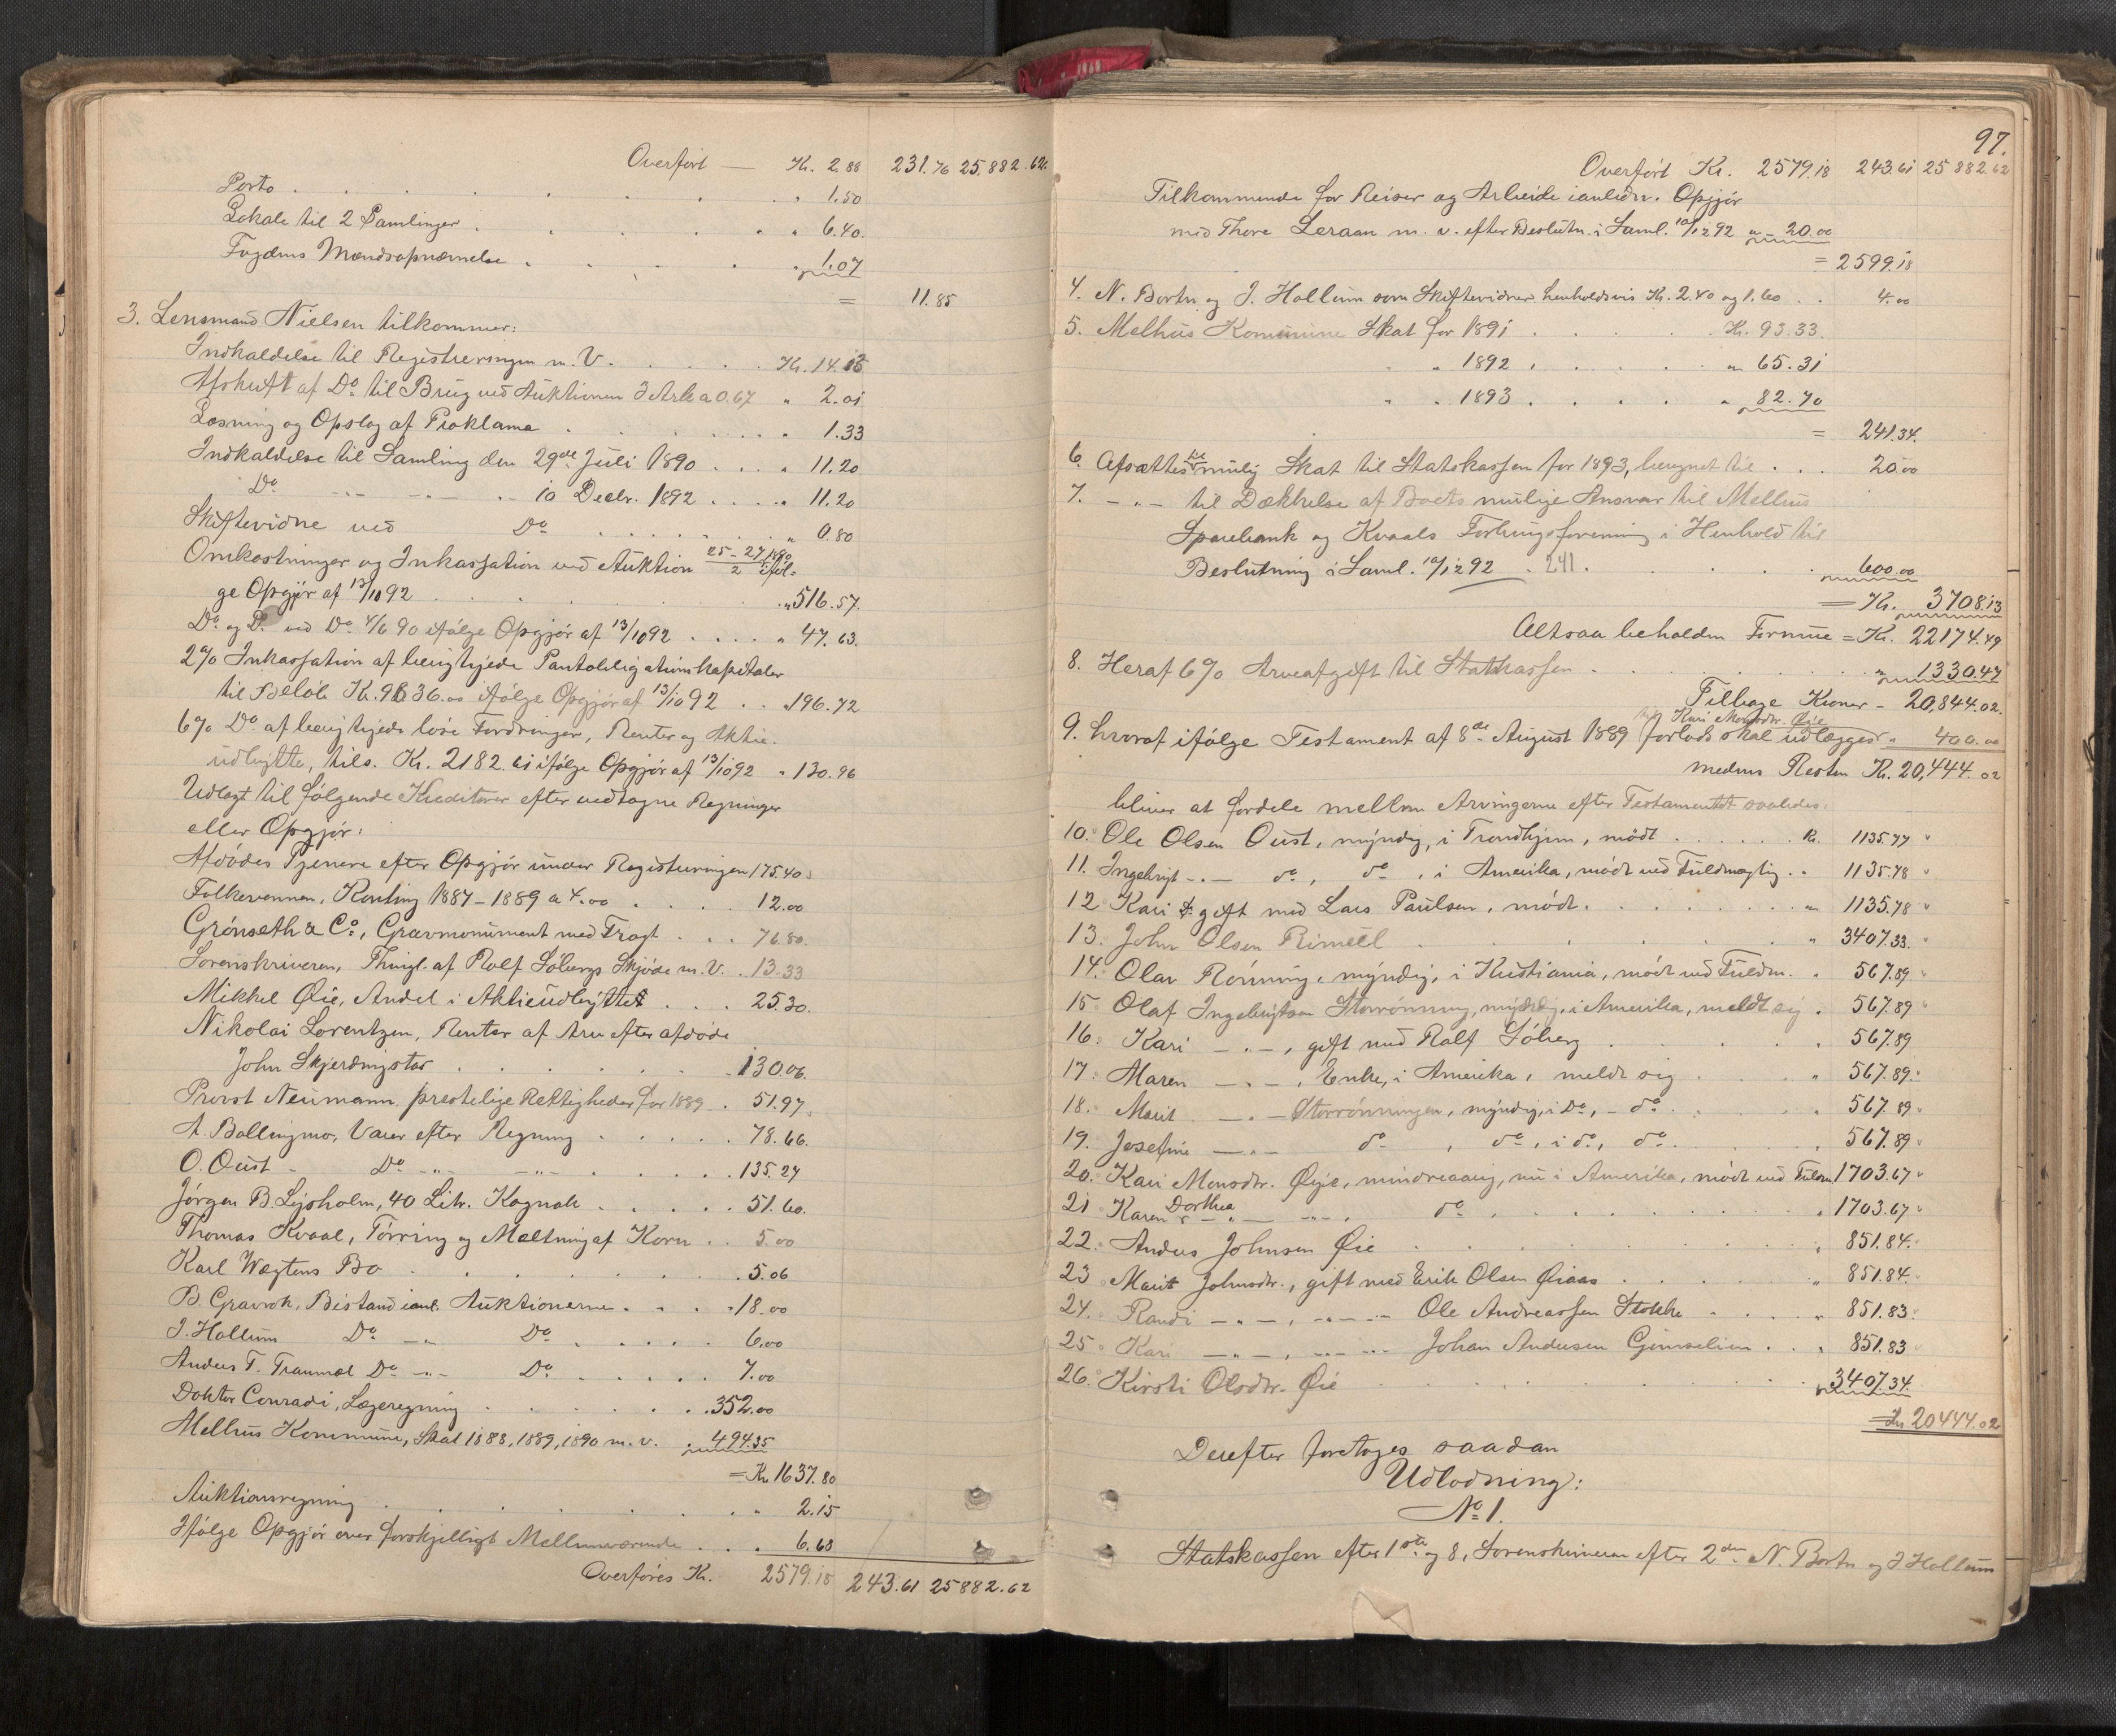 Overført — Kr. 2.88 231.76 25.882.62
Porto . . . . . . . " 1.50
Lokale til 2 Samlinger . . . . " 6.40
Fogdens Mændsopnævnelse . . . . " 1.07
= 11.85
3. Lensmand Nielsen tilkommer:
Indkaldelse til Registreringen m. V. . . . . . Kr. 14.
Afskrift af Do til Brug ved Auktionen 3 Ark a 0.67 " 2.01
Læsning og Opslag af Proklama . . . . . " 1.33
Indkaldelse til Samling den 29de Juli 1890 . . . . " 11.20
Do -"- -"- " 10 Decbr. 1892 . . . . " 11.20
Skiftevidne ved Do . . . . . . . " 0.80
Omkostninger og Inkassation ved Auktion 25-27/2 1890 iføl-
ge Opgjør af 13/10 92 . . . . . . . " 516.57.
Do og Do ved Do 4/6 90 ifølge Opgjør af 13/10 92 . . . . " 47.63.
2% Inkassation af berigtigede Pantobligationskapitaler
til Beløb Kr. 9836.00 ifølge Opgjør af 13/10 92 . . " 196.72
6% Do af berigtigede løse Fordringer, Renter og Aktie-
udbytte, tils. Kr. 2182.61 ifølge Opgjør af 13/10 92 " 130.96
Udlagt til følgende Kreditorer efter vedtagne Regninger
eller Opgjør:
Afdødes Tjenere efter Opgjør under Registreringen 175.40
Folkevennen, Konting 1887-1889 a 4.00 . . . . 12.00
Grønseth & Co, Gravmonument med Fragt . . . 76.80.
Sorenskriveren, Thingl. af Rolf Søbergs Skjøde m. V. . 13.33
Mikkel Øie, Andel i Aktieudbyttet . . . 25.30.
Nikolai Lorentzen, Renter af Arv efter afdøde
John Skjerdingstad . . . . . . . 130.06.
Provst Neumann prestelige Rettigheder for 1889 . 51.97
A. Bollingmo, Varer efter Regning . . . . . 78.66.
O. Oust - Do -"- -"- . . . . . 135.27
Jørgen B. Lysholm, 40 Litr. Kognak . . . . . 51.60.
Thomas Kvaal, Tørring og Maltning af Korn . . 5.00
Karl Wægtens Bo . . . . . . . . 5.06
B. Gravrok, Bistand ianl. Auktionerne . . . . 18.00
J. Hollum Do -"- Do . . . . . 6.00
Anders T. Tranmæl Do -"- Do . . . . . 7.00
Doktor Conradi, Lægeregning . . . . . . 352.00
Melhus Kommune, Skat 1888, 1889, 1890 m. v. . 494.35
= Kr. 1637.80
Auktionsregning . . . . . . . " 2.15
Ifølge Opgjør over forskjelligt Mellemværende . . . 6.68
Overføres Kr. 2579.18 243.61 25882.62
97.
Overført Kr. 2579.18 243.61 25882.62
Tilkommende for Reiser og Arbeide ianledn. Opgjør
med Thore Leraan m. v. efter Beslutn. i Saml. 10/12 92 " 20.00
= 2599.18
4. N. Bortn og J. Hollum som Skiftevidner henholdsvis Kr. 2.40 og 1.60 . . 4.00
5. Melhus Kommune Skat for 1891 . . . . . Kr. 93.33.
" " 1892 . . . . . " 65.31
" " 1893 . . . . . " 82.70
= 241.34.
6. Afsættes til mulig Skat til Statskassen for 1893, beregnet til . . . 20.00
7. -"- til Dækkelse af Boets mulige Ansvar til Melhus
Sparebank og Kvaals Forbrugsforening i Henhold til
Beslutning i Saml. 10/12 92 . 241 . . . . . 600.00
= Kr. 3708.13
Altsaa beholden Formue = Kr. 22174.49
8. Heraf 6% Arveafgift til Statskassen . . . . . . " 1330.47
Tilbage Kroner - 20,844.02.
Kari Monsdtr. Øie
9. hvoraf ifølge Testament af 8de August 1889 forlods skal udlægges " 400.00
medens Resten Kr. 20,444.02
bliver at fordele mellem Arvingerne efter Testamentet saaledes:
10. Ole Olsen Oust, myndig, i Trondhjem, mødt . . . . . Kr. 1135.77
11. Ingebrigt -"- do, do, i Amerika, mødt ved Fuldmægtig . . 1135.78
12 Kari do gift med Lars Paulsen, mødt . . . . . . " 1135.78
13. John Olsen Rimeel . . . . . . " 3407.33.
14. Olav Rønning, myndig, i Kristiania, mødt ved Fuldm. . 567.89
15 Olaf Ingebrigtsen Storrønning, myndig, i Amerika, meldt sig . 567.89
16. Kari -"-, gift med Rolf Søberg . . . . . 567.89
17. Maren -"-, Enke, i Amerika, meldt sig . . . . " 567.89.
18. Marit -"- Storrønningen, myndig, i Do, - do . . . . 567.89
19. Josefine -"- do, do, i do, do . . . . 567.89
20. Kari Monsdtr. Øyie, mindreaarig, nu i Amerika, mødt ved Fuldm. 1703.67
21 Karen Dorthea -"- -"-, do . . . . . . . " 1703.67
22. Anders Johnsen Øie . . . . . . . 851.84.
23 Marit Johnsdtr., gift med Erik Olsen Øiaas . . . . . " 851.84.
24. Randi -"-, -"- -"- Ole Andreassen Stokke . . . . " 851.83.
25. Kari -"-, -"- -"- Johan Andersen Gimselien . . . 851.83
26. Kirsti Olsdtr. Øie . . . . . . . . 3407.34.
= Kr. 20444.02
Derefter foretages saadan
Udlodning:
No 1.
Statskassen efter 1ste og 8, Sorenskriveren efter 2den N. Bortn og J. Hollum